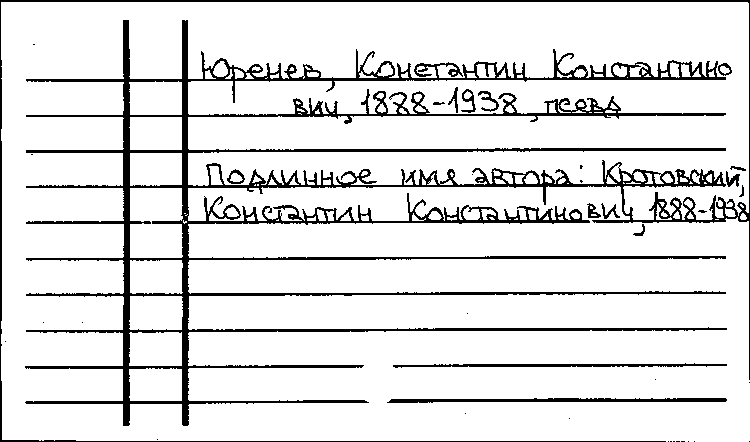 Юренев, Константин Константино
вич, 1888-1938, псевд
Подлинное имя автора: Кротовский,
Константин Константинович, 1888-1938